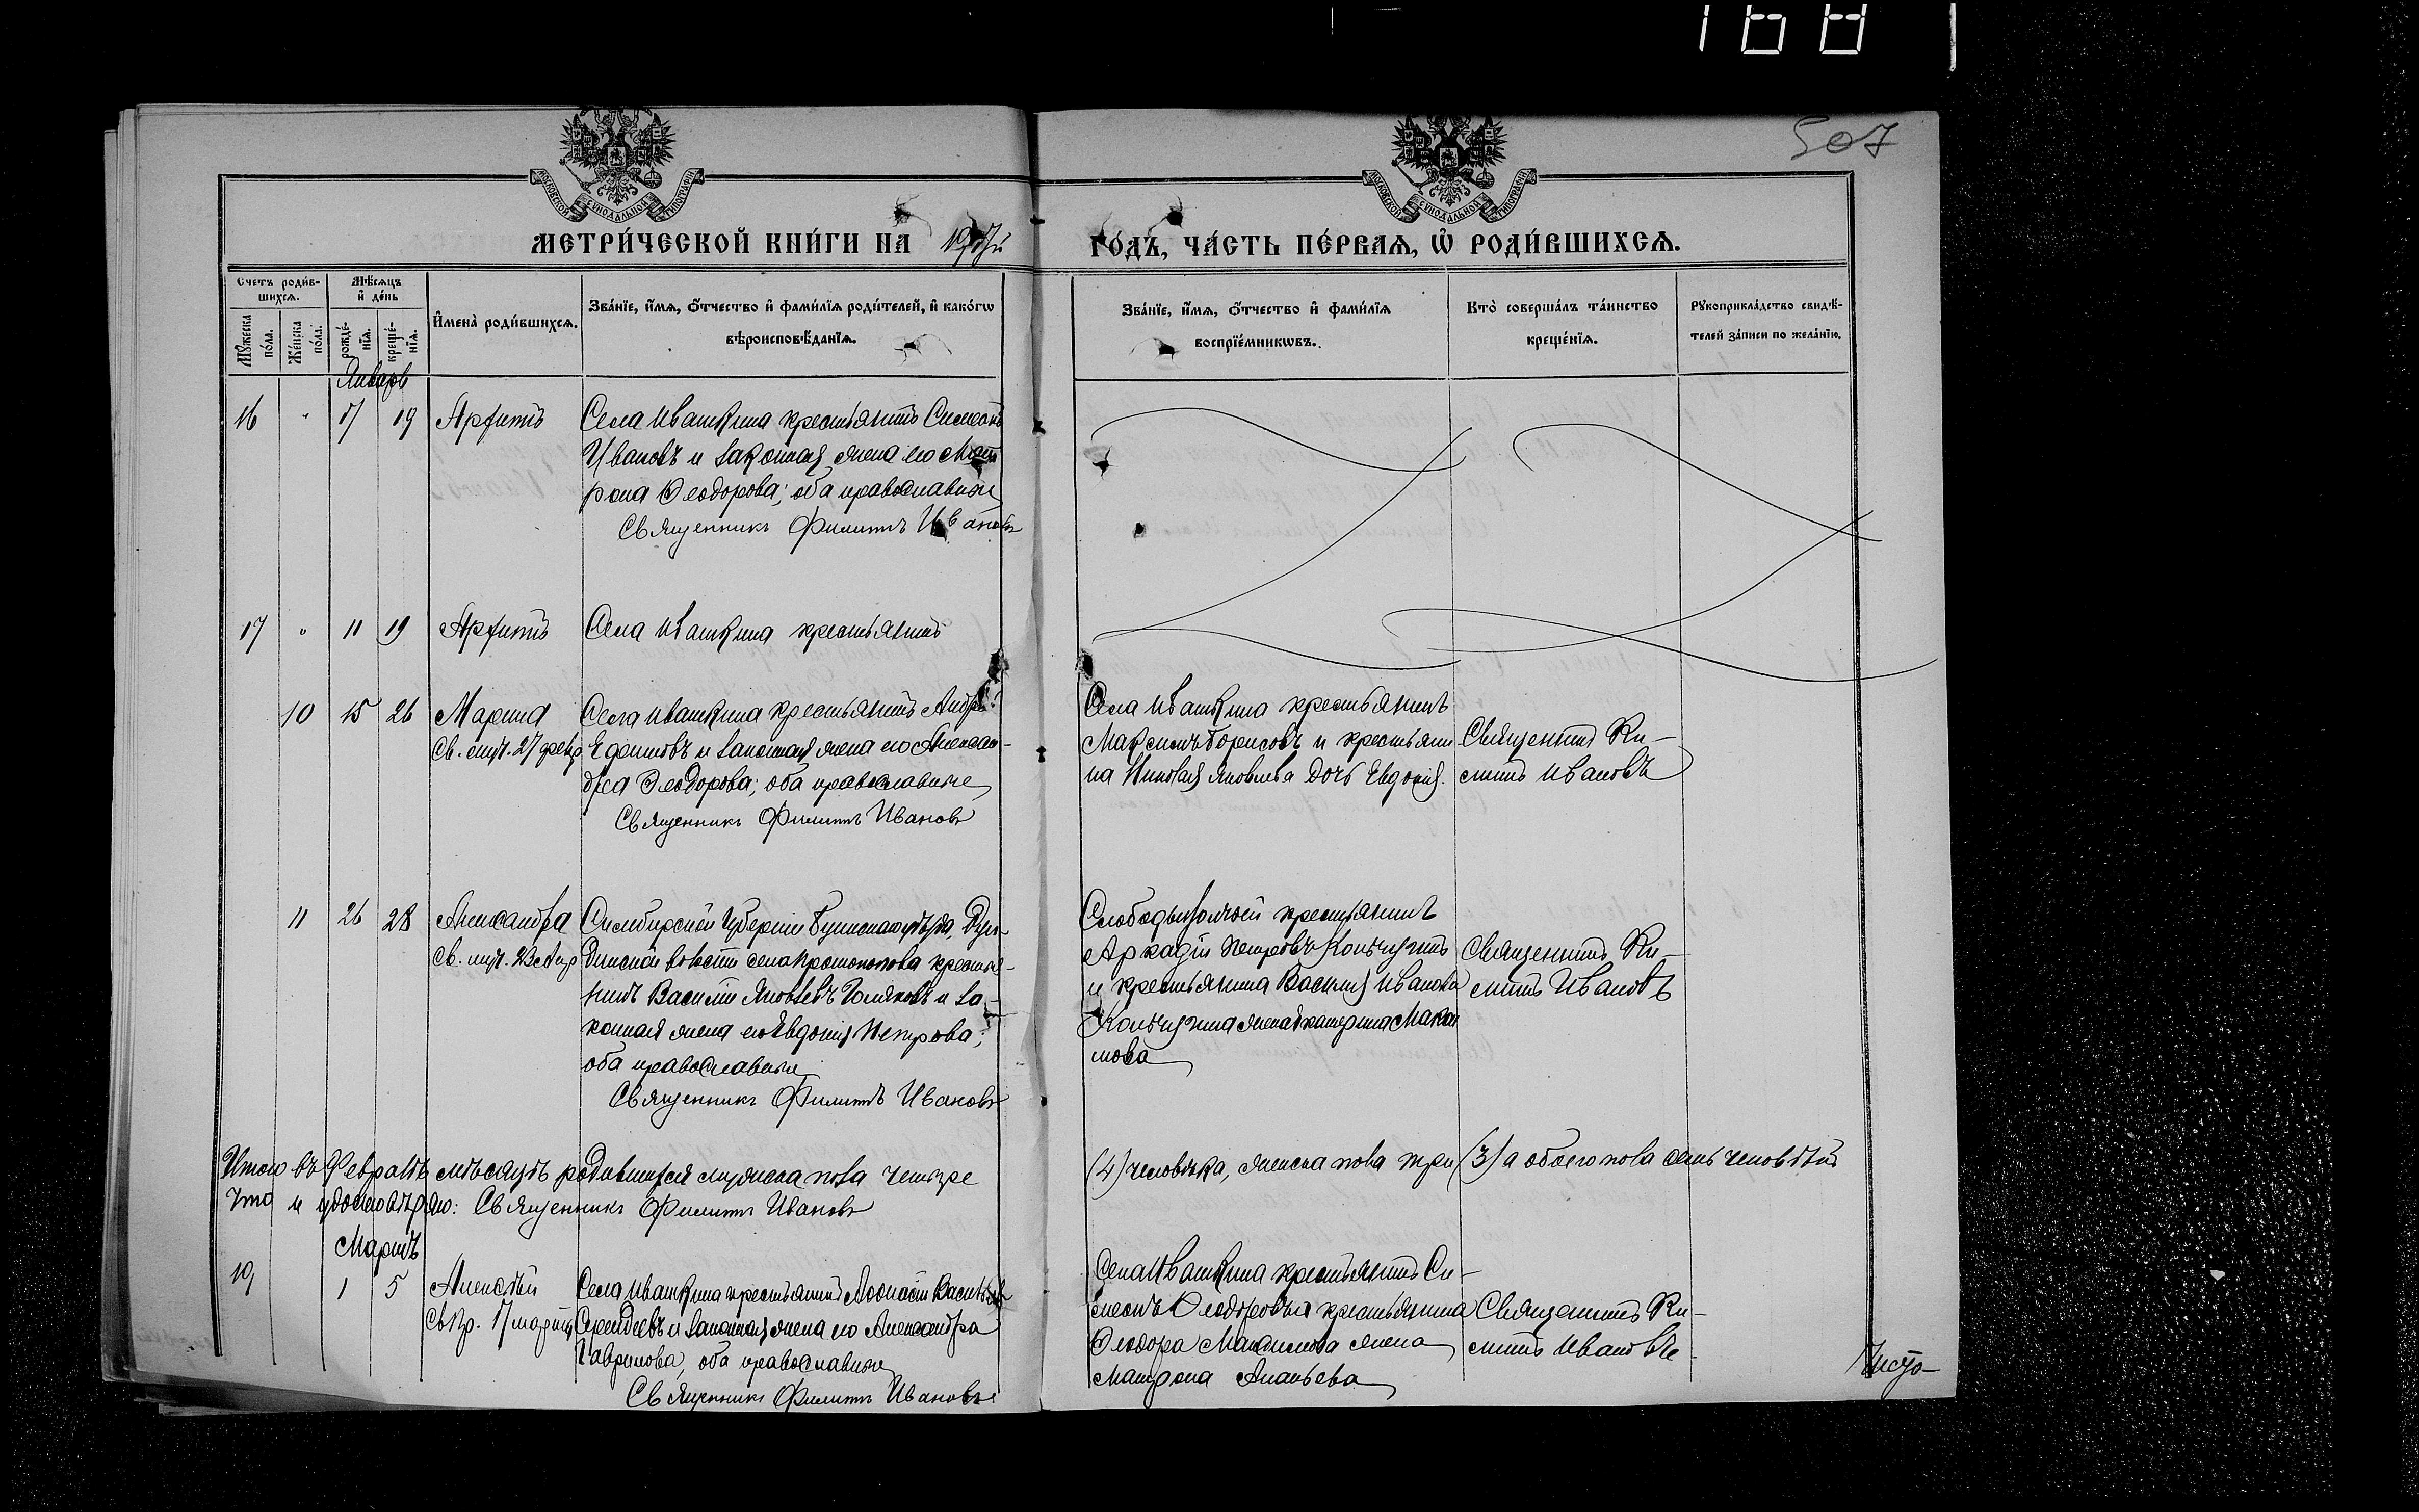 507
МЕТРИ́ЧЕСКОЙ КНИ́ГИ НА
ГО́ДЪ, ЧА́СТЬ ПЕ́РВАЯ, Ѡ҆ РОДИ́ВШИХСЯ.
Счетъ роди́в-
шихся.
Мѣ́сяцъ
и҆ де́нь
Мꙋ́жеска
по́ла.
Же́нска
по́ла.
рожде́-
нїя.
креще́-
нїя.
И҆мена̀ роди́вшихся.
Зва́нїе, и҆́мя, ѻ҆́тчество и҆ фами́лїя роди́телей, и҆ како́гѡ
вѣроисповѣ́данїя.
Зва́нїе, и҆́мя, ѻ҆́тчество и҆ фами́лїя
воспрїе́мникѡвъ.
Кто̀ соверша́лъ та́инство
креще́нїя.
Рꙋкоприкла́дство свидѣ́-
телей за́писи по жела́нїю.
Январь
16 " 17 19 Архипъ Села Ивашкина крестьянинъ Симеонъ
Ивановъ и законная жена его Мат
рона Ѳеодорова; оба православные
Священникъ Филиппъ Ивановъ
17 " 11 19 Архипъ Села Ивашкина крестьянинъ
10 15 26 Марина Села Ивашкина крестьянинъ Андрей
27 февр Ефимовъ и законная жена его Алексан-
дра Ѳеодорова; оба православные
Священникъ Филиппъ Ивановъ
Села Ивашкина крестьянинъ
Максимъ Борисовъ и крестьяни
на Николая Яковлева дочь Евдокія.
Священникъ Фи-
липпъ Ивановъ
11 26 28 Александра Симбирской Губерніи Буинскаго уѣзда,
волости села Протопопова крестья-
нинъ Василій Яковлевъ и за-
конная жена его Евдокія Петрова;
оба православные
Священникъ Филиппъ Ивановъ
Слободы крестьянинъ
Аркадій Петровъ
и крестьянина Василія Иванова
жена Екатерина Макси
мова
Священникъ Фи-
липпъ Ивановъ
Итого въ Февралѣ мѣсяцѣ родившихся мужеска пола четыре
(4) человѣка, женска пола три (3) а обоего пола семь человѣкъ
Что и удостовѣряю: Священникъ Филиппъ Ивановъ
Мартъ
19 1 5 Алексѣй Села Ивашкина крестьянинъ Аѳонасій Васильевъ
17 марта и законная жена его Александра
Гаврилова, оба православные
Священникъ Филиппъ Ивановъ
Села Ивашкина крестьянинъ Си-
меонъ Ѳеодоровъ и крестьянина
Ѳеодора Максимова жена
Матрона Ананьева
Священникъ Фи-
липпъ Ивановъ